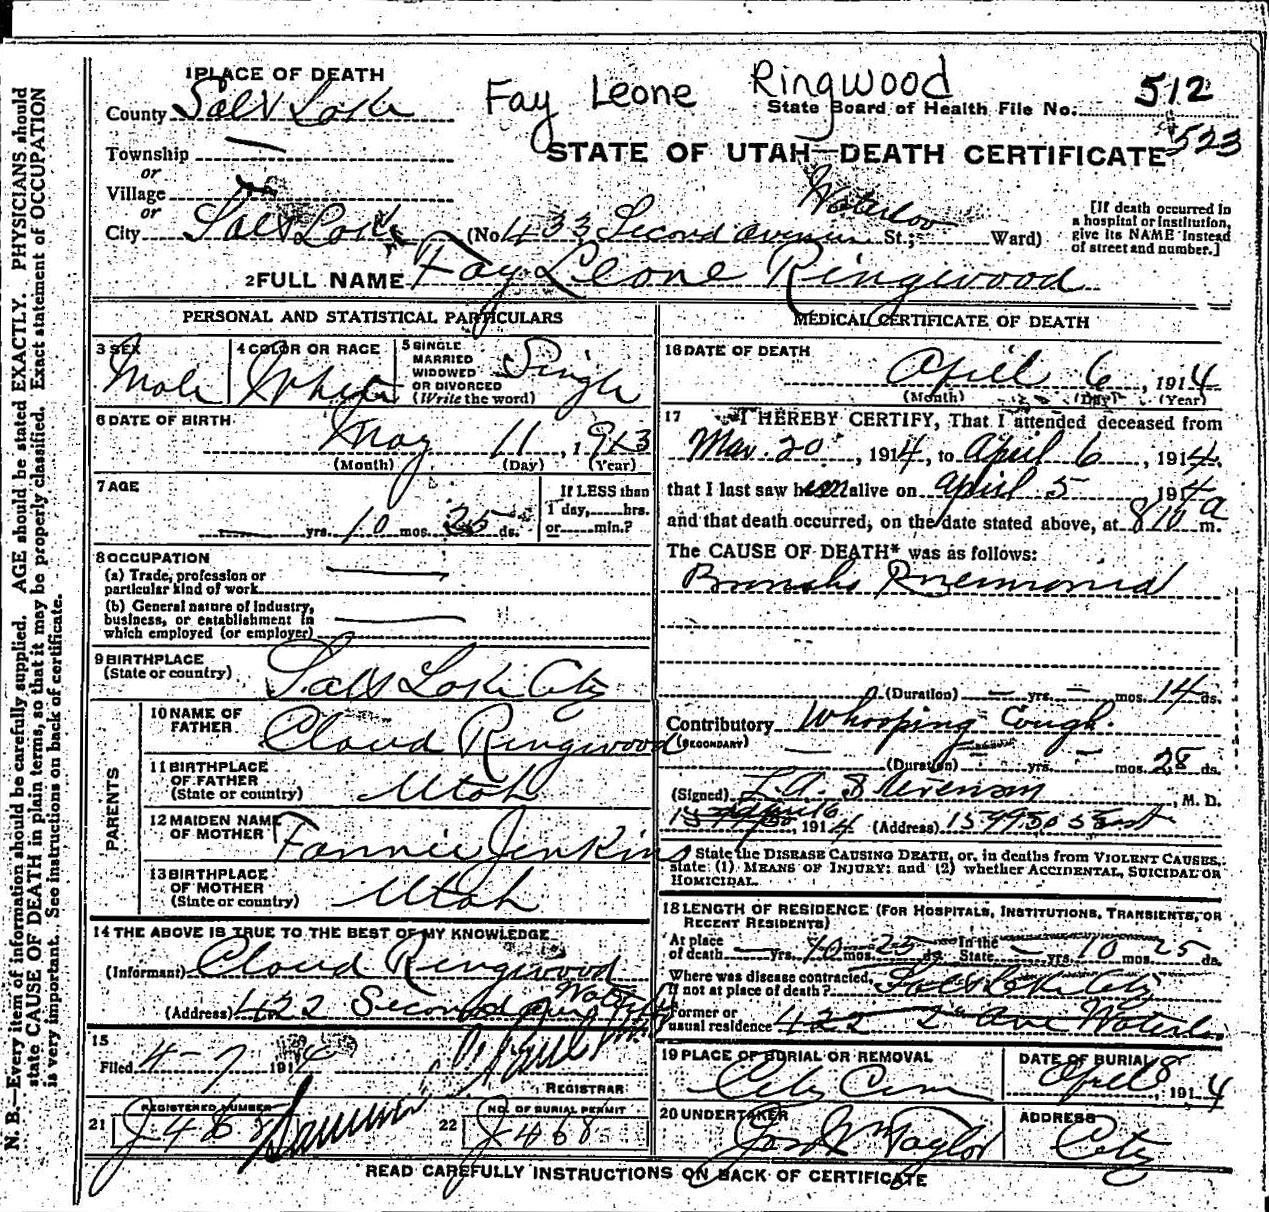 Fay Leone Ringwood
1 PLACE OF DEATH
County Salt Lake
State Board of Health File No. 512
523
Township
or
Village
or
STATE OF UTAH—DEATH CERTIFICATE
City Salt Lake (No 433 Second avenue St.; Waterloo Ward)
[If death occurred in
a hospital or institution,
give its NAME instead
of street and number.]
2 FULL NAME Fay Leone Ringwood
PERSONAL AND STATISTICAL PARTICULARS
3 SEX Male
4 COLOR OR RACE White
5 SINGLE
MARRIED
WIDOWED
OR DIVORCED
(Write the word) Single
6 DATE OF BIRTH May 11, 1913
(Month) (Day) (Year)
7 AGE
yrs. 10 mos. 25 ds.
If LESS than
1 day, hrs.
or min.?
8 OCCUPATION
(a) Trade, profession or
particular kind of work
(b) General nature of industry,
business, or establishment in
which employed (or employer)
9 BIRTHPLACE
(State or country) Salt Lake City
PARENTS
10 NAME OF
FATHER Claud Ringwood
11 BIRTHPLACE
OF FATHER
(State or country) Utah
12 MAIDEN NAME
OF MOTHER Fannie Jenkins
13 BIRTHPLACE
OF MOTHER
(State or country) Utah
14 THE ABOVE IS TRUE TO THE BEST OF MY KNOWLEDGE
(Informant) Claud Ringwood
(Address) 422 Second
15
Filed 4-7 1914
REGISTRAR
21 REGISTERED NUMBER J468
22 NO. OF BURIAL PERMIT J468
MEDICAL CERTIFICATE OF DEATH
16 DATE OF DEATH
April 6, 1914
(Month) (Day) (Year)
17 I HEREBY CERTIFY, That I attended deceased from
Mar. 20, 1914, to April 6, 1914,
that I last saw him alive on April 5 1914
and that death occurred, on the date stated above, at 810 a m.
The CAUSE OF DEATH* was as follows:
Broncho Pneumonia
(Duration) — yrs. — mos. 14 ds.
Contributory Whooping Cough.
(SECONDARY)
(Duration) yrs. — mos. 28 ds.
(Signed) L. A. Stevenson, M. D.
April 6, 1914 (Address) 159 9 50 East
State the DISEASE CAUSING DEATH, or, in deaths from VIOLENT CAUSES,
state (1) MEANS OF INJURY; and (2) whether ACCIDENTAL, SUICIDAL OR
HOMICIDAL.
18 LENGTH OF RESIDENCE (FOR HOSPITALS, INSTITUTIONS, TRANSIENTS, OR
RECENT RESIDENTS)
At place
of death — yrs. 10 mos. 25 ds. In the
State — yrs. 10 mos. 25 ds.
Where was disease contracted,
If not at place of death? Salt Lake City
Former or
usual residence 422 2d Ave Waterloo
19 PLACE OF BURIAL OR REMOVAL
City Cem
DATE OF BURIAL
April 8 1914
20 UNDERTAKER
Jos Wm Taylor
ADDRESS
City
READ CAREFULLY INSTRUCTIONS ON BACK OF CERTIFICATE
N. B.—Every item of information should be carefully supplied. AGE should be stated EXACTLY. PHYSICIANS should
state CAUSE OF DEATH in plain terms, so that it may be properly classified. Exact statement of OCCUPATION
is very important. See instructions on back of certificate.